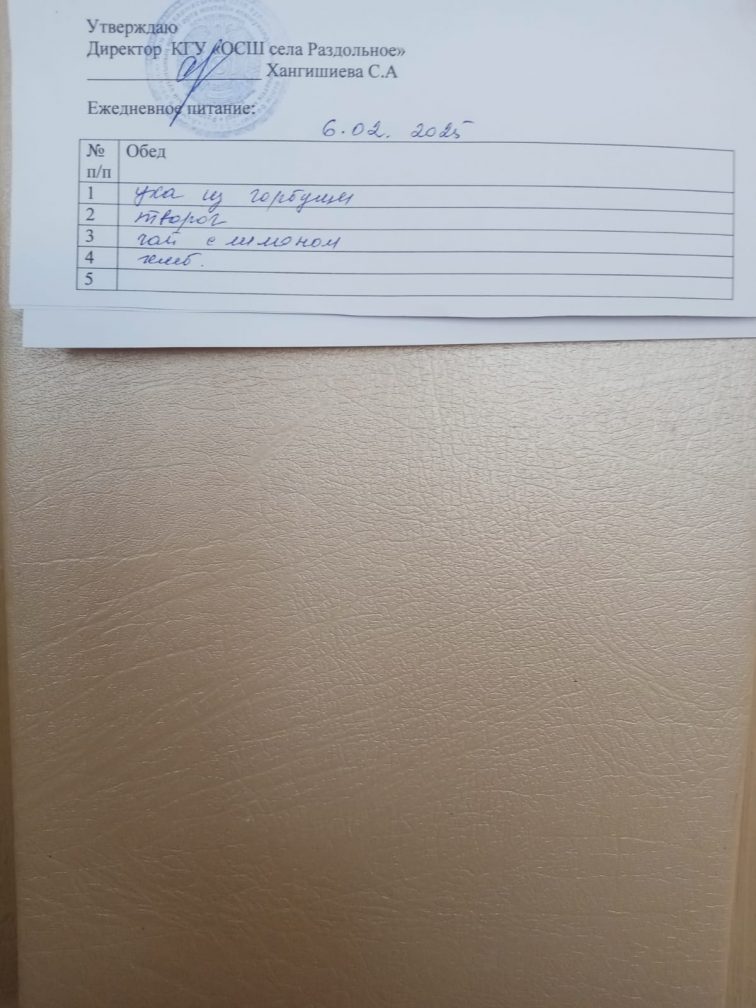 Утверждаю
Директор КГУ «ОСШ села Раздольное»
Хангишиева С.А
Ежедневное питание:
6.02.2025
№ п/п Обед
1 уха из горбуши
2 творог
3 чай с лимоном
4 хлеб.
5